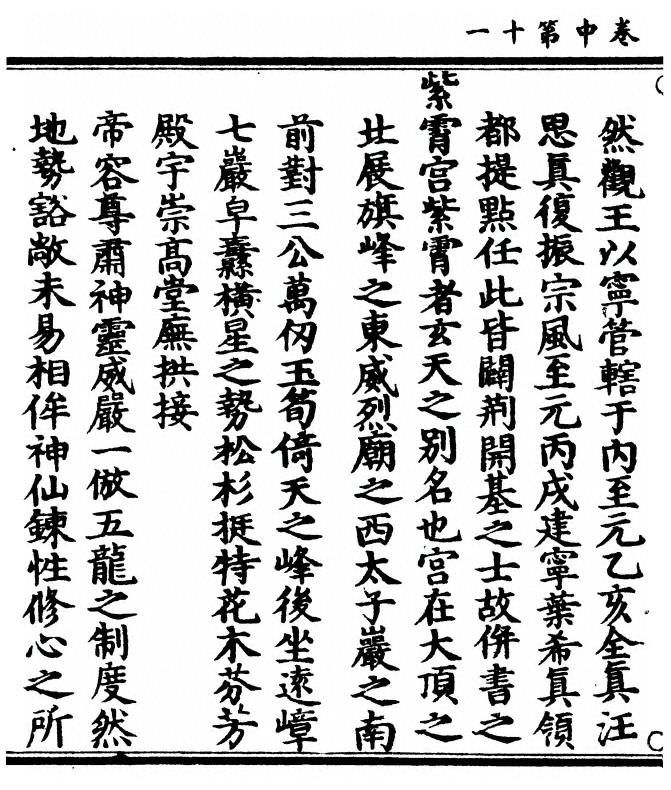 卷中第十一
然觀王以寧管轄于内至元乙亥全眞汪
思眞復振宗風至元丙戌建寧葉希眞領
都提點任此皆闢荆開基之士故併書之
紫霄宫紫霄者玄天之别名也宫在大頂之
北展旗峰之東威烈廟之西太子巖之南
前對三公萬仭玉筍倚天之峰後坐遠嶂
七巖皁纛横星之勢松杉挺特花木芬芳
殿宇崇高堂廡拱接
帝容尊肅神靈威嚴一倣五龍之制度然
地勢豁敞未易相侔神仙鍊性脩心之所